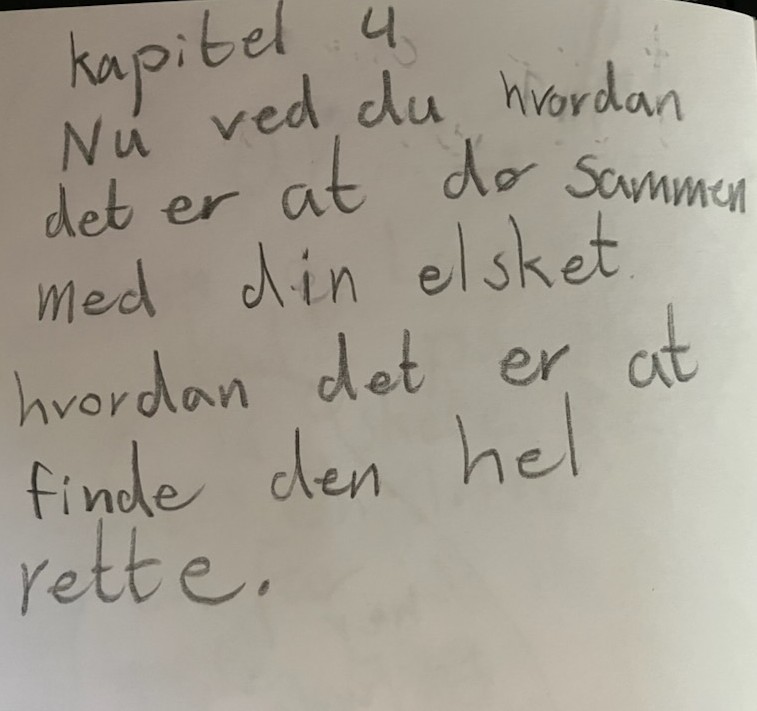 kapitel 4
Nu ved du hvordan
det er at dø sammen
med din elsket.
hvordan det er at
finde den hel
rette.